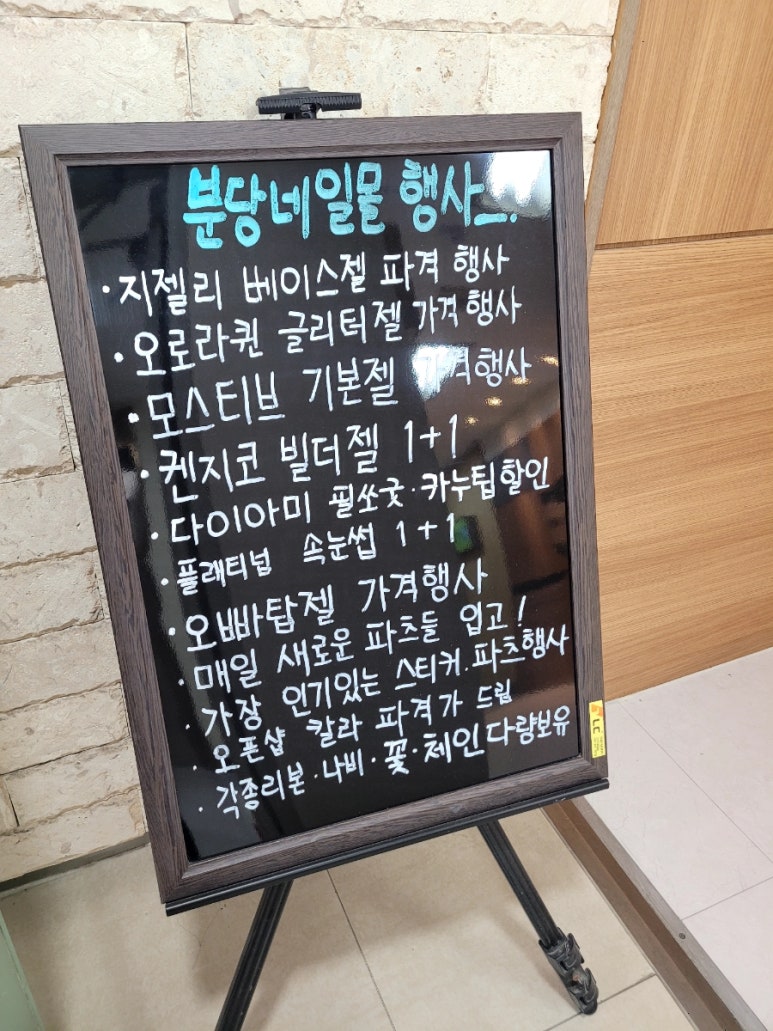 분당네일몰 행사!
· 지젤리 베이스젤 파격 행사
· 오로라퀸 글리터젤 가격행사
· 모스티브 기본젤 가격행사
· 켄지코 빌더젤 1+1
· 다이아미 필쏘굿·카누팁할인
· 플래티넘 속눈썹 1+1
· 오빠탑젤 가격행사
· 매일 새로운 파츠들 입고!
· 가장 인기있는 스티커.파츠행사
· 오픈샵 칼라 파격가 드림
· 각종리본·나비·꽃·체인다량보유
LC